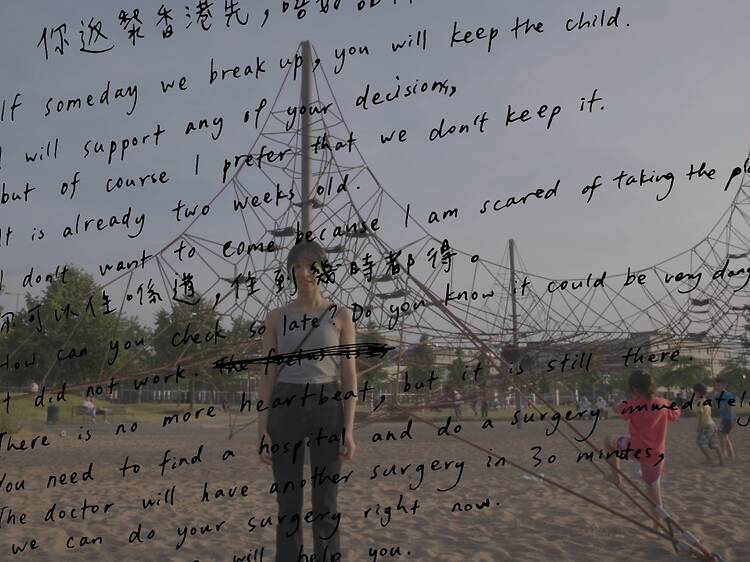 你返黎香港先,唔好
If someday we break up, you will keep the child.
I will support any of your decisions,
but of course I prefer that we don't keep it.
It is already two weeks old.
I don't want to come because I am scared of taking the
你可以住喺道,住到幾時都得。
How can you check so late? Do you know it could be very
it did not work.
There is no more heartbeat, but it is still there.
You need to find a hospital and do a surgery immediately.
The doctor will have another surgery in 30 minutes,
we can do your surgery right now.
will help you.